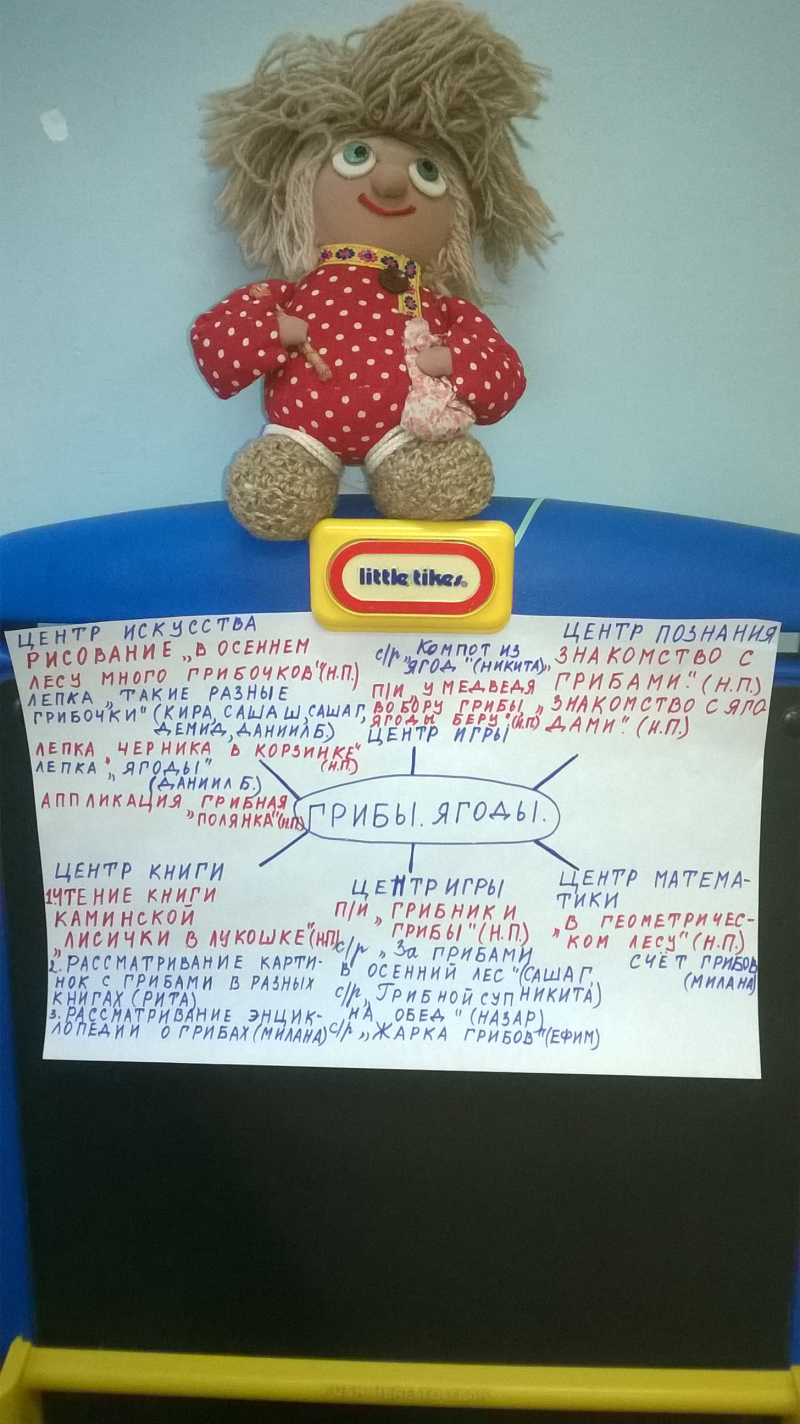 little tikes
ЦЕНТР ИСКУССТВА
РИСОВАНИЕ „В ОСЕННЕМ
ЛЕСУ МНОГО ГРИБОЧКОВ"(Н.П.)
ЛЕПКА „ТАКИЕ РАЗНЫЕ
ГРИБОЧКИ" (КИРА, САША Ш, САША Г,
ДЕМИД, ДАНИИЛ Б.)
ЛЕПКА „ЧЕРНИКА В КОРЗИНКЕ"
(Н.П.)
ЛЕПКА „ЯГОДЫ"
(ДАНИИЛ Б.)
АППЛИКАЦИЯ „ГРИБНАЯ
ПОЛЯНКА"(Н.П.)
с/р „КОМПОТ ИЗ
ЯГОД" (НИКИТА)
П/И „У МЕДВЕДЯ
ВО БОРУ ГРИБЫ,
ЯГОДЫ БЕРУ"(Н.П)
ЦЕНТР ИГРЫ
ЦЕНТР ПОЗНАНИЯ
„ЗНАКОМСТВО С
ГРИБАМИ." (Н.П.)
„ЗНАКОМСТВО С ЯГО
ДАМИ". (Н.П.)
ГРИБЫ. ЯГОДЫ.
ЦЕНТР КНИГИ
1ЧТЕНИЕ КНИГИ
КАМИНСКОЙ
„ЛИСИЧКИ В ЛУКОШКЕ"(Н.П)
2. РАССМАТРИВАНИЕ КАРТИ-
НОК С ГРИБАМИ В РАЗНЫХ
КНИГАХ (РИТА)
3. РАССМАТРИВАНИЕ ЭНЦИК-
ЛОПЕДИИ О ГРИБАХ (МИЛАНА)
ЦЕНТР ИГРЫ
П/И „ГРИБНИК И
ГРИБЫ" (Н.П.)
с/р „За ГРИБАМИ
В ОСЕННИЙ ЛЕС" (САША Г,
НИКИТА)
с/р „ГРИБНОЙ СУП
НА ОБЕД" (НАЗАР)
с/р „ЖАРКА ГРИБОВ" (ЕФИМ)
ЦЕНТР МАТЕМА-
ТИКИ
„В ГЕОМЕТРИЧЕС-
КОМ ЛЕСУ" (Н.П.)
СЧЁТ ГРИБОВ
(МИЛАНА)